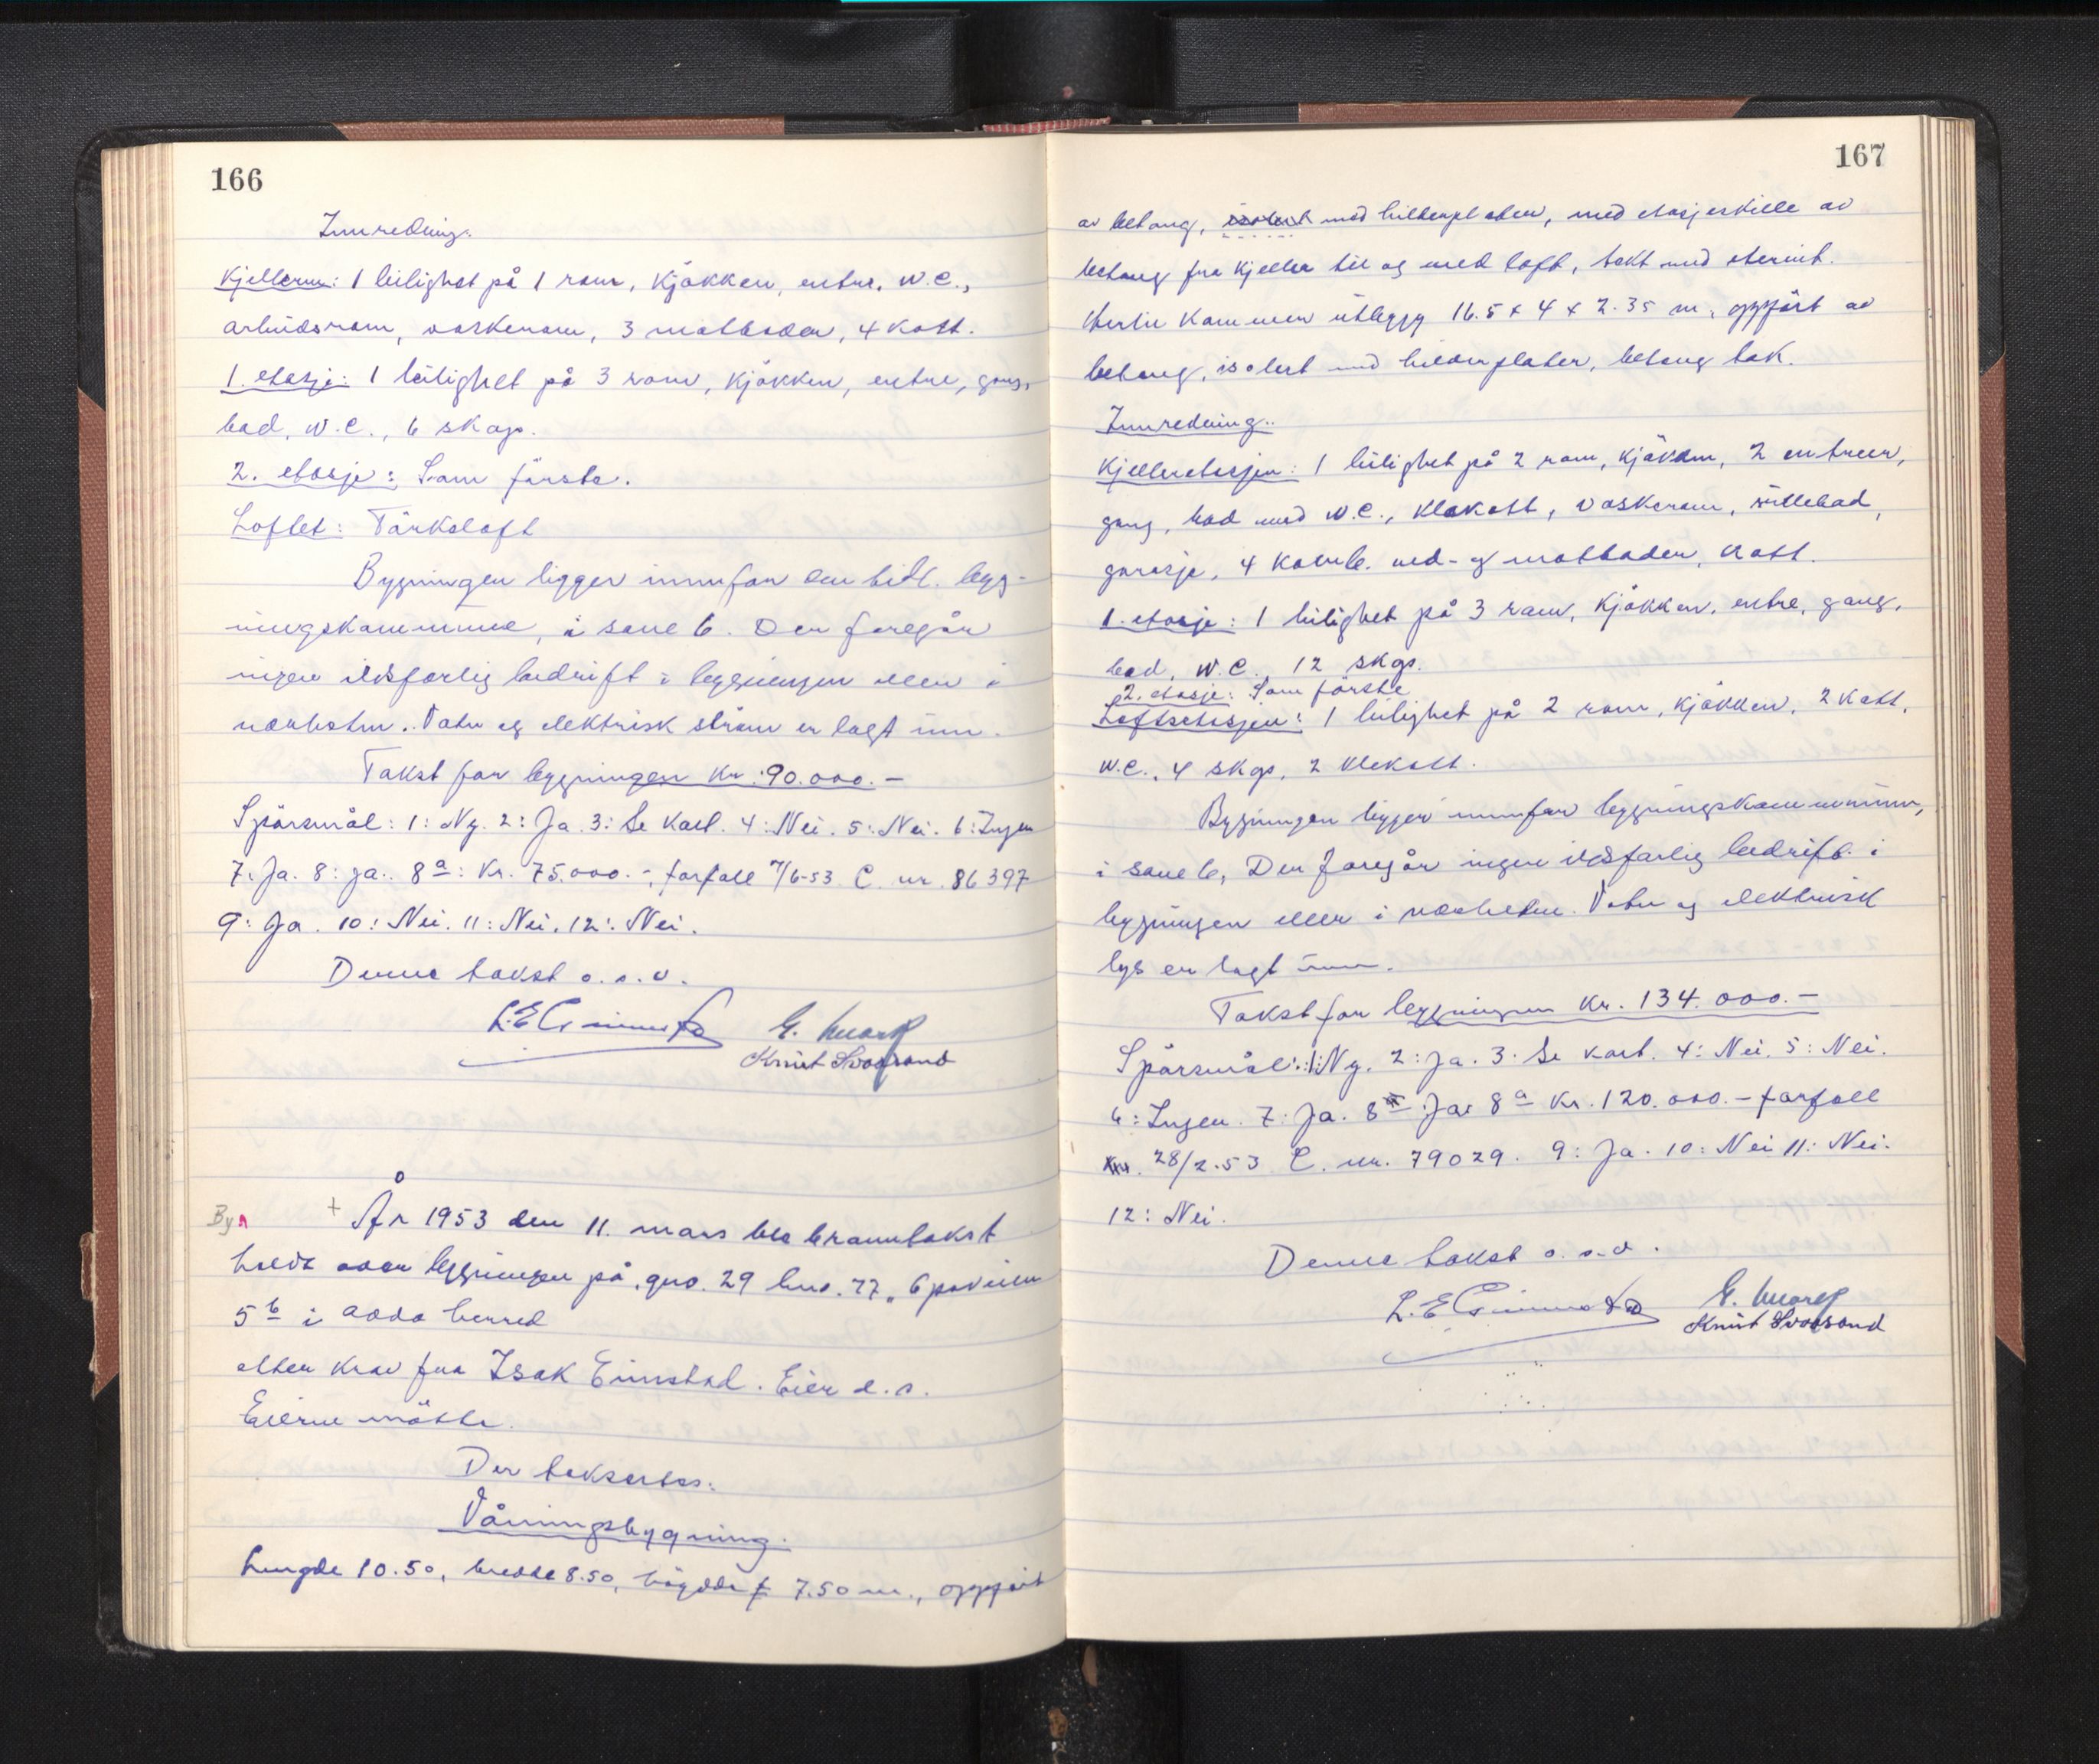 166
Innredning.
Kjelleren: 1 leilighet på 1 rom, kjøkken, entre, W.C.,
arbeidsrom, vaskerom, 3 matboder, 4 kott.
1. etasje: 1 leilighet på 3 rom, kjøkken, entre, gang,
bad, W.C., 6 skap.
2. etasje: Som første.
Loftet: Tørkeloft
Bygningen ligger innenfor den tidl. byg-
ningskommune, i sone 6. Der foregår
ingen ildsfarlig bedrift i bygningen eller i
nærheten. Vatn og elektrisk strøm er lagt inn.
Takst for bygningen kr. 90.000.-
Spørsmål: 1: Ny. 2: Ja. 3: Se kart. 4: Nei. 5: Nei. 6: Ingen
7. Ja. 8: ja. 8a: Kr. 75.000.-, forfall /6-53 C. nr. 86397
9: Ja. 10: Nei. 11: Nei. 12: Nei.
Denne takst o.s.v.
Knut Svoasand
+ År 1953 den 11. mars ble branntakst
holdt over bygningen på gno. 29 bno. 77,
5b i herred
etter krav fra Isak Einstad. Eier e.s.
Eieren møtte.
Der takseres:
Våningsbygning.
Lengde 10.50, bredde 8.50, høgde 7.50 m., oppført
167
av betong, isolert med plater, med etasjeskille av
betong fra kjeller til og med loft, tekt med eternit.
Hertil kommer utbygg 16.5 x 4 x 2.35 m, oppført av
betong, isolert med plater, betong tak.
Innredning.
Kjelleretasjen: 1 leilighet på 2 rom, kjøkken, 2 entreer,
gang, bad med W.C., klekott, vaskerom, rullebod,
garasje, 4 komb. ved- og matboder, kott.
1. etasje: 1 leilighet på 3 rom, kjøkken, entre, gang,
bad, W.C. 12 skap.
2. etasje: Som første
Loftsetasjen: 1 leilighet på 2 rom, kjøkken, 2 kott,
W.C., 4 skap, 2 klekott.
Bygningen ligger innenfor bygningskommunen,
i sone 6, Der foregår ingen ildsfarlig bedrift i
bygningen eller i nærheten. Vatn og elektrisk
lys er lagt inn.
Takst for bygningen Kr. 134.000.-
Spørsmål: 1: Ny. 2: Ja. 3: Se kart. 4: Nei. 5: Nei.
6: Ingen. 7: Ja. 8: Ja: 8a Kr. 120.000.- forfall
28/2-53 C. nr. 79029. 9: Ja. 10: Nei 11: Nei.
12: Nei.
Denne takst o.s.v.
Knut Svoasand